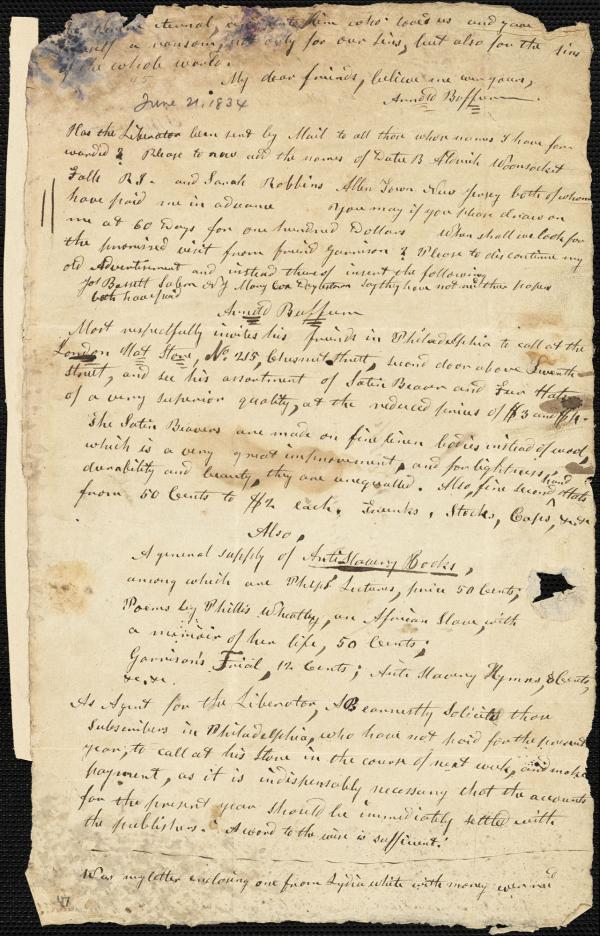 eternal, and unto Him who loved us and gave
himself a ransom, not only for our sins, but also for the sins
of the whole world.
My dear friends, believe me ever yours,
Arnold Buffum.
June 21. 1834
Has the Liberator been sent by Mail to all those whose names I have for-
warded? Please to now add the names of B Aldrich Woonsocket
Falls R.I. and Sarah Robbins Allen Town New Jersey both of whom
have paid me in advance You may if you please draw on
me at 60 Days for one hundred Dollars When shall we look for
the promised visit from friend Garrison? Please to discontinue my
old Advertisement and instead thereof insert the following
Jos Bassett Salem & Mary Cox say they have not recd their papers
both have paid
Arnold Buffum
Most respectfully invites his friends in Philadelphia to call at the
London Hat Store, No 215, Chesnut street, second door above Seventh
street, and see his assortment of Satin Beaver and Fur Hats
of a very superior quality, at the reduced prices of $3 and $4.
The Satin Beavers are made on fine linen bodies instead of wool,
which is a very great improvement, and for lightness,
durability and beauty, they are unequalled. Also, fine second hand Hats
from 50 Cents to $2 each. Trunks, Stocks, Caps, &c. &c
Also,
A general supply of Anti Slavery Books,
among which are Phelps' Lectures, price 50 Cents;
Poems by Phillis Wheatley, an African Slave, with
a memoir of her life, 50 Cents;
Garrison's Trial, 12 Cents; Anti Slavery Hymns, 8 Cents,
&c. &c.
As Agent for the Liberator, AB earnestly solicits those
Subscribers in Philadelphia, who have not paid for the present
year, to call at his store in the course of next week, and make
payment, as it is indispensably necessary that the accounts
for the present year should be immediately settled with
the publishers. 'A word to the wise is sufficient.'
Was my letter enclosing one from Lydia White with money ever recd
47